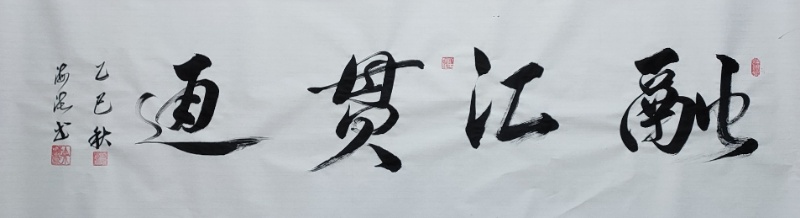 融汇贯通
乙巳秋
海 书